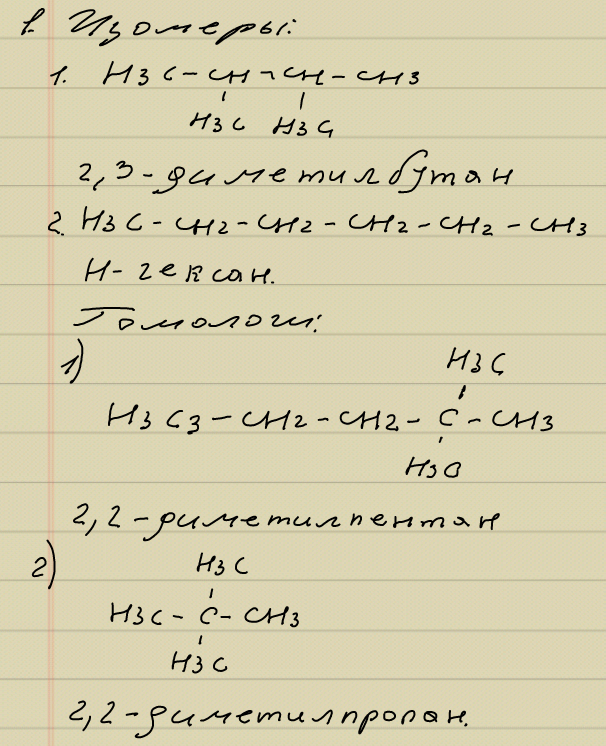 1. Изомеры:
1. H3C-CH-CH-CH3
H3C H3C
2,3-диметилбутан
2. H3C-CH2-CH2-CH2-CH2-CH3
Н-гексан.
Гомологи:
1)
H3C
H3C3-CH2-CH2-C-CH3
H3C
2,2-диметилпентан
2)
H3C
H3C-C-CH3
H3C
2,2-диметилпропан.